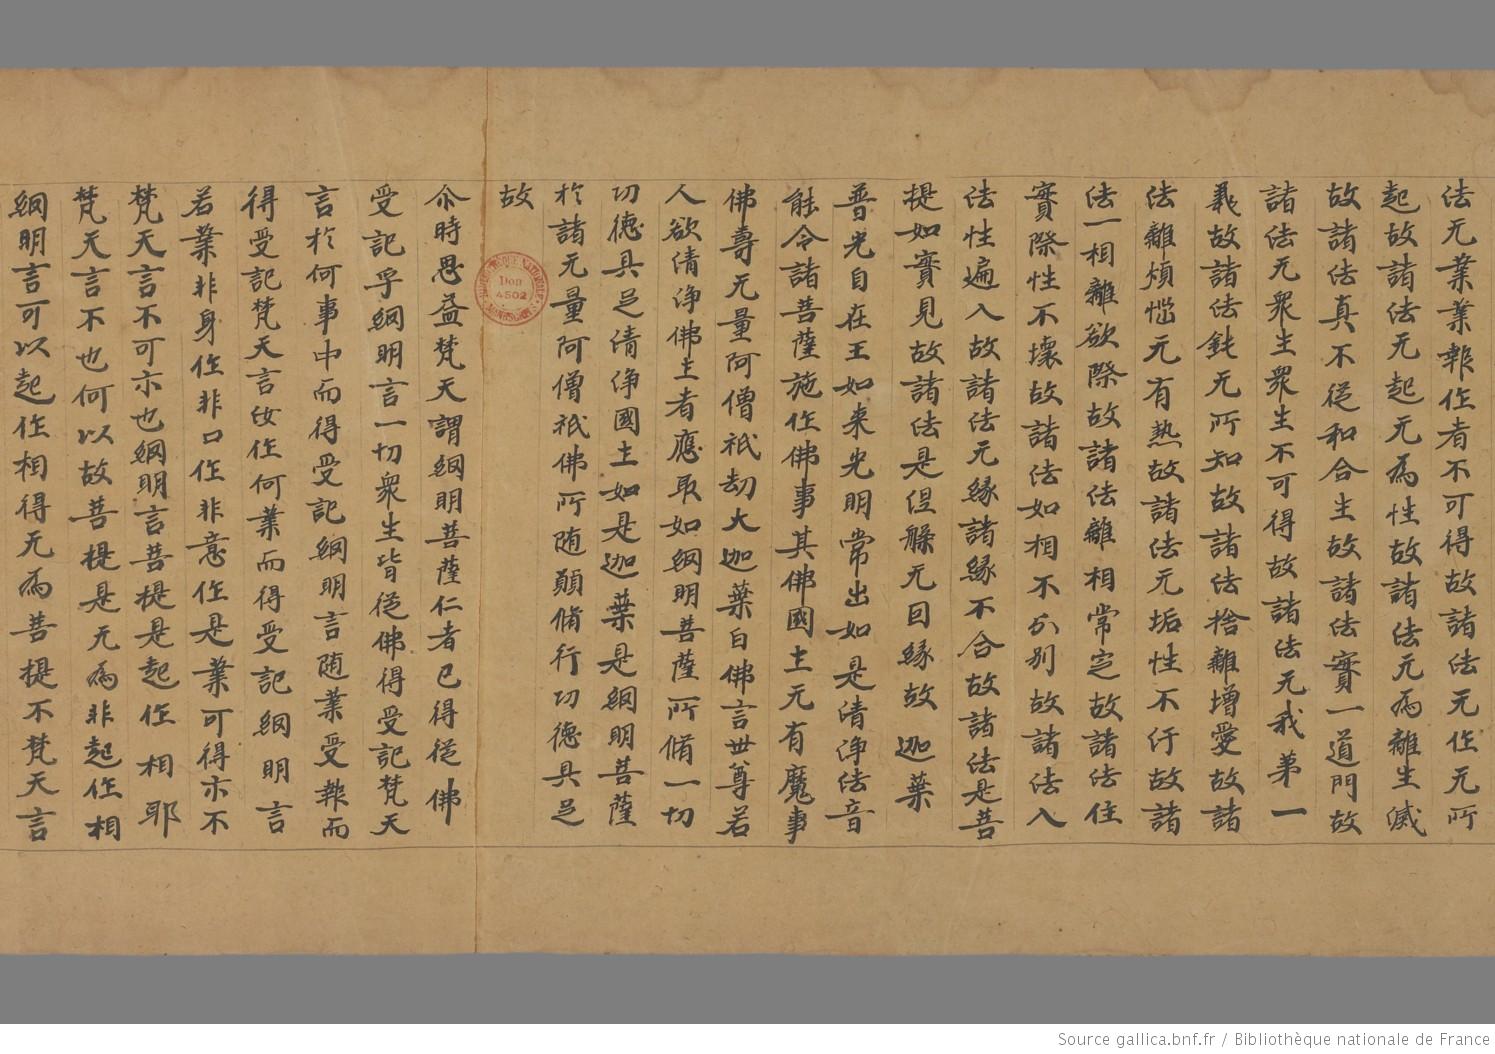 法无業業報作者不可得故諸法无作无所
起故諸法无起无為性故諸法无為離生滅
故諸法真不從和合生故諸法實一道門故
諸法无眾生眾生不可得故諸法无我第一
義故諸法鈍无所知故諸法捨離增愛故諸
法離煩惱无有热故諸法无垢性不汙故諸
法一相離欲際故諸法離相常定故諸法住
實際性不壞故諸法如相不分別故諸法入
法性遍入故諸法无緣諸緣不合故諸法是菩
提如實見故諸法是涅槃无因緣故 迦葉
普光自在王如来光明常出如是清淨法音
能令諸菩薩施作佛事其佛國土无有魔事
佛壽无量阿僧祇劫大迦葉白佛言世尊若
人欲清淨佛土者應取如網明菩薩所脩一切
功德具足清淨國土如是迦葉是網明菩薩
於諸无量阿僧祇佛所随願脩行功德具足
故
尒時思益梵天謂網明菩薩仁者已得從佛
受記乎網明言一切眾生皆從佛得受記梵天
言於何事中而得受記網明言随業受報而
得受記梵天言汝作何業而得受記網明言
若業非身作非口作非意作是業可得示不
梵天言不可示也網明言菩提是起作相耶
梵天言不也何以故菩提是无為非起作相
網明言可以起作相得无為菩提不梵天言
Don
4502
Source gallica.bnf.fr / Bibliothèque nationale de France